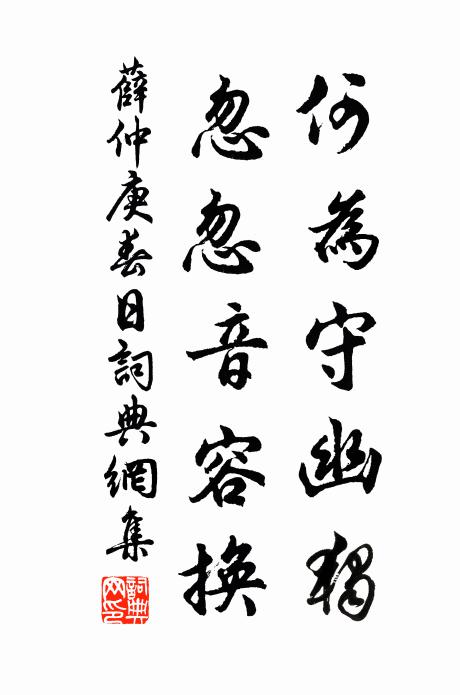 何為守幽獨
忽忽音容換
薛仲庚春日詞典網集
詞典網印